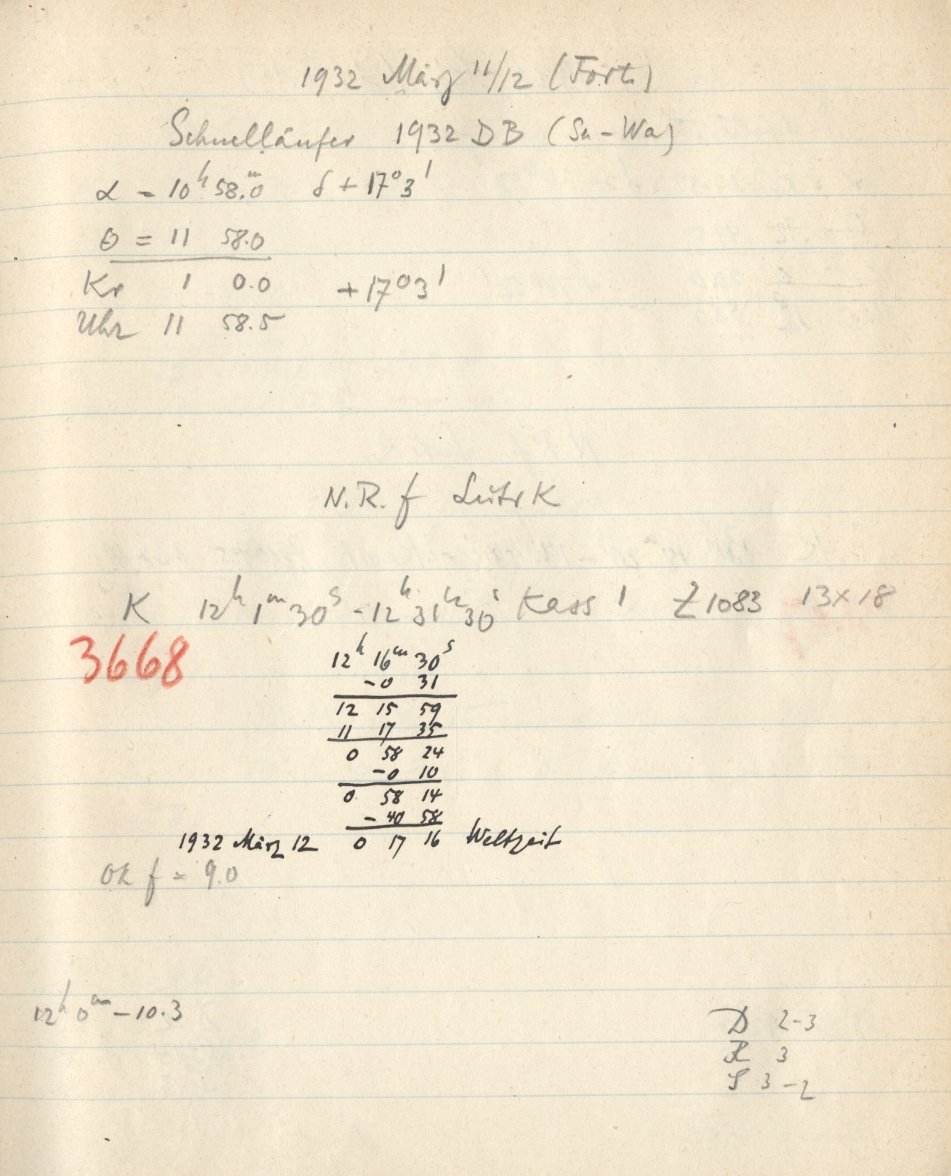 1932 März 11/12 (Forts.)
Schnelläufer 1932 DB (Su-Wa)
α = 10h 58.m0 δ + 17°3'
θ = 11 58.0
Kr 1 0.0 + 17°3'
Uhr 11 58.5
N.R. f K
K 12h 1m 30s - 12h 31m 30s Kass 1 Z 1083 13×18
3668
12h 16m 30s
-0 31
12 15 59
11 17 35
0 58 24
-0 10
0 58 14
- 40 58
1932 März 12 0 17 16 Weltzeit
f = 9.0
12h 0m - 10.3
D 2-3
R 3
S 3-2